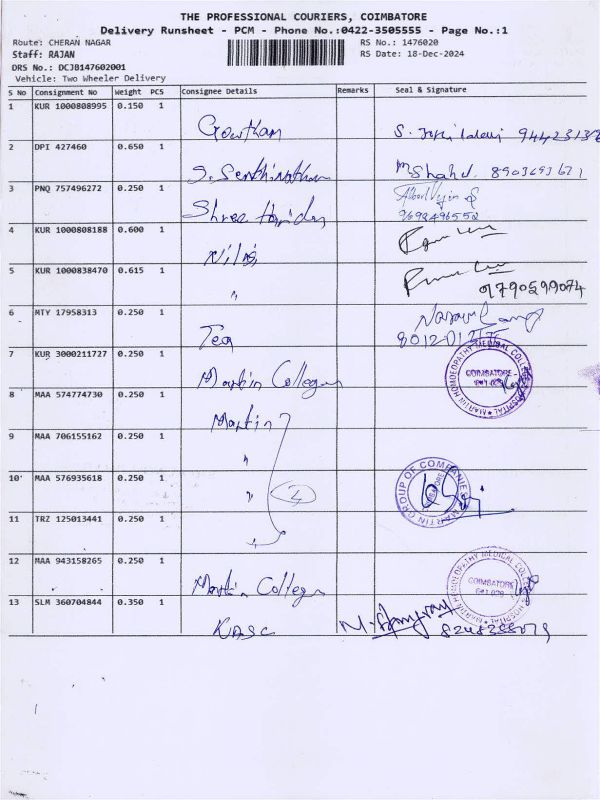 THE PROFESSIONAL COURIERS, COIMBATORE
Delivery Runsheet - PCM - Phone No.:0422-3505555 - Page No.:1
Route: CHERAN NAGAR
RS No.: 1476020
Staff: RAJAN
RS Date: 18-Dec-2024
DRS No.: DCJB147602001
Vehicle: Two Wheeler Delivery
S No Consignment No Weight PCS Consignee Details Remarks Seal & Signature
1 KUR 1000808995 0.150 1
Gowtham
2 DPI 427460 0.650 1
S. Senthinathan Shahul 8903693621
3 PNQ 757496272 0.250 1
Shree Haridas 9692496552
4 KUR 1000808188 0.600 1
Nila
5 KUR 1000838470 0.615 1
" 9790599074
6 MTY 17958313 0.250 1
Tea
7 KUR 3000211727 0.250 1
Martin College
MARTIN HOMOEOPATHY MEDICAL COLLEGE HOSPITAL
COIMBATORE
8 MAA 574774730 0.250 1
Martin
9 MAA 706155162 0.250 1
"
10 MAA 576935618 0.250 1
" 4
MARTIN GROUP OF COMPANIES
11 TRZ 125013441 0.250 1
12 MAA 943158265 0.250 1
Martin College
MARTIN HOMOEOPATHY MEDICAL COLLEGE HOSPITAL
COIMBATORE
13 SLM 360704844 0.350 1
KASC